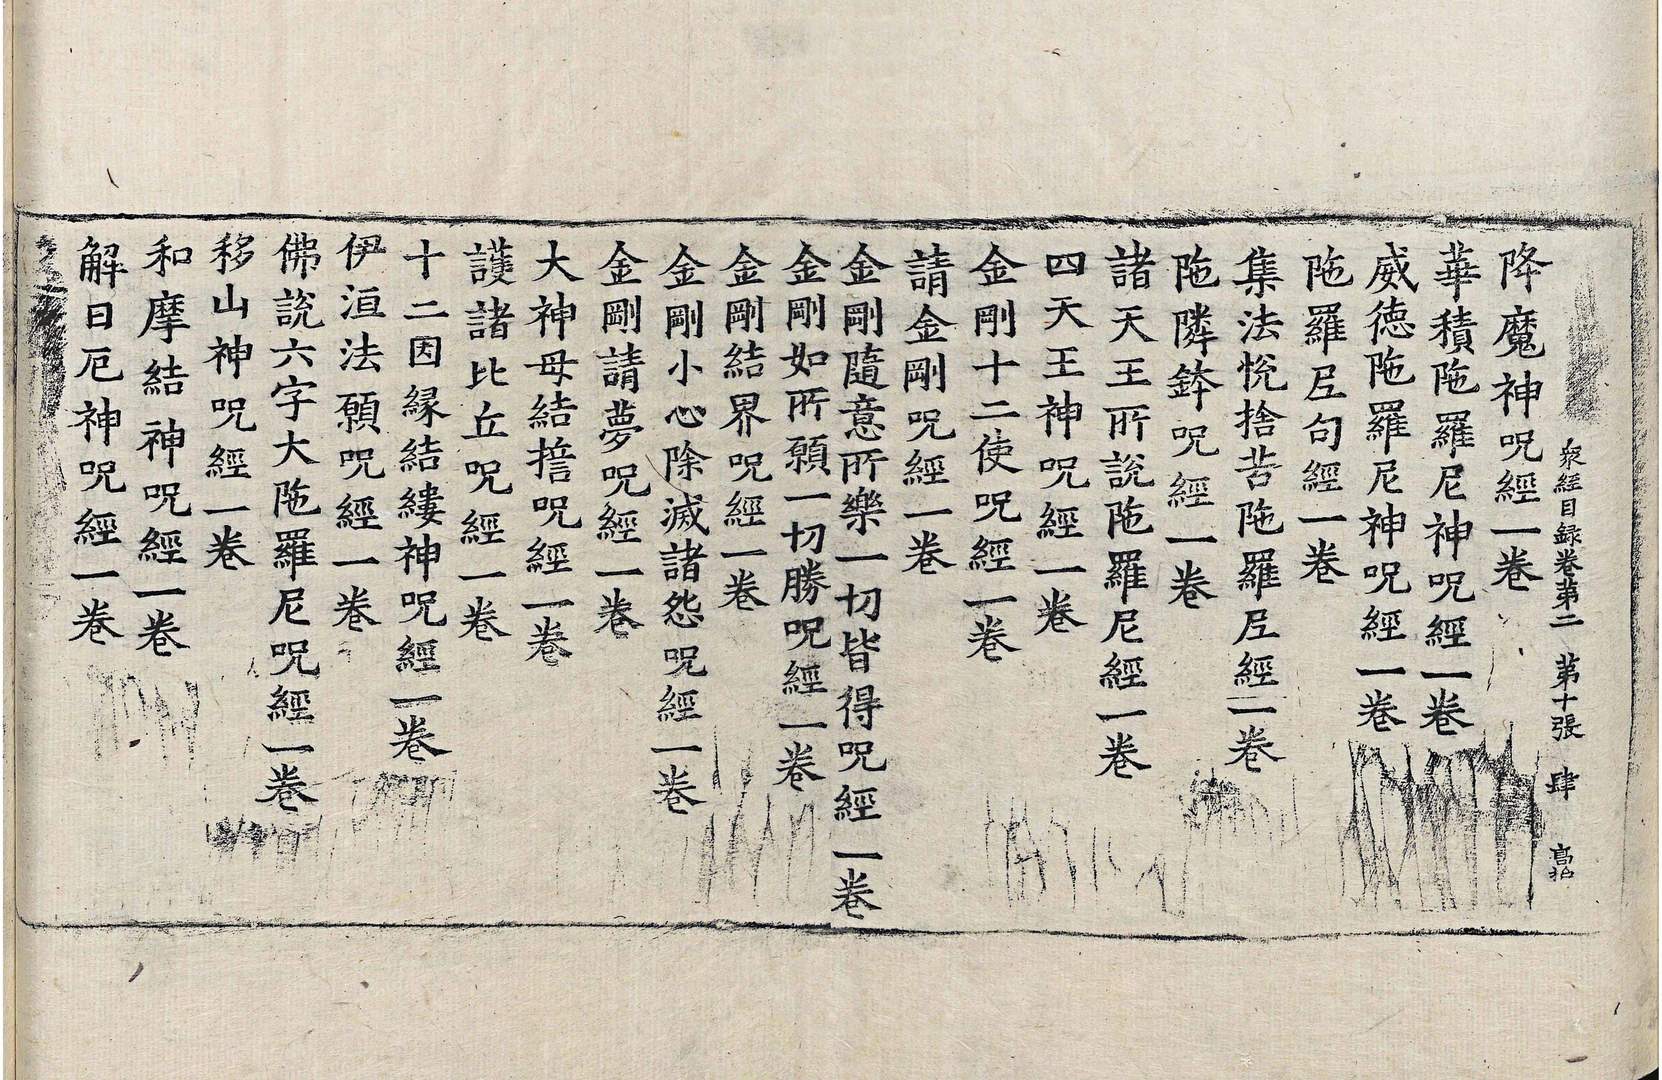 衆經目録卷苐二　苐十張　肆
降魔神呪經一卷
華積陁羅尼神呪經一卷
威徳陁羅尼神呪經一卷
陁羅𡰱句經一卷
集法悅捨苦陁羅𡰱經一卷
陁隣鉢呪經一卷
諸天王所說陁羅尼經一卷
四天王神呪經一卷
金剛十二使呪經一卷
請金剛呪經一卷
金剛隨意所樂一切皆得呪經一卷
金剛如所願一切勝呪經一卷
金剛結界呪經一卷
金剛小心除滅諸怨呪經一卷
金剛請夢呪經一卷
大神母結誓呪經一卷
護諸比丘呪經一卷
十二因縁結縷神呪經一卷
伊洹法願呪經一卷
佛說六字大陁羅尼呪經一卷
移山神呪經一卷
和摩結神呪經一卷
解日厄神呪經一卷